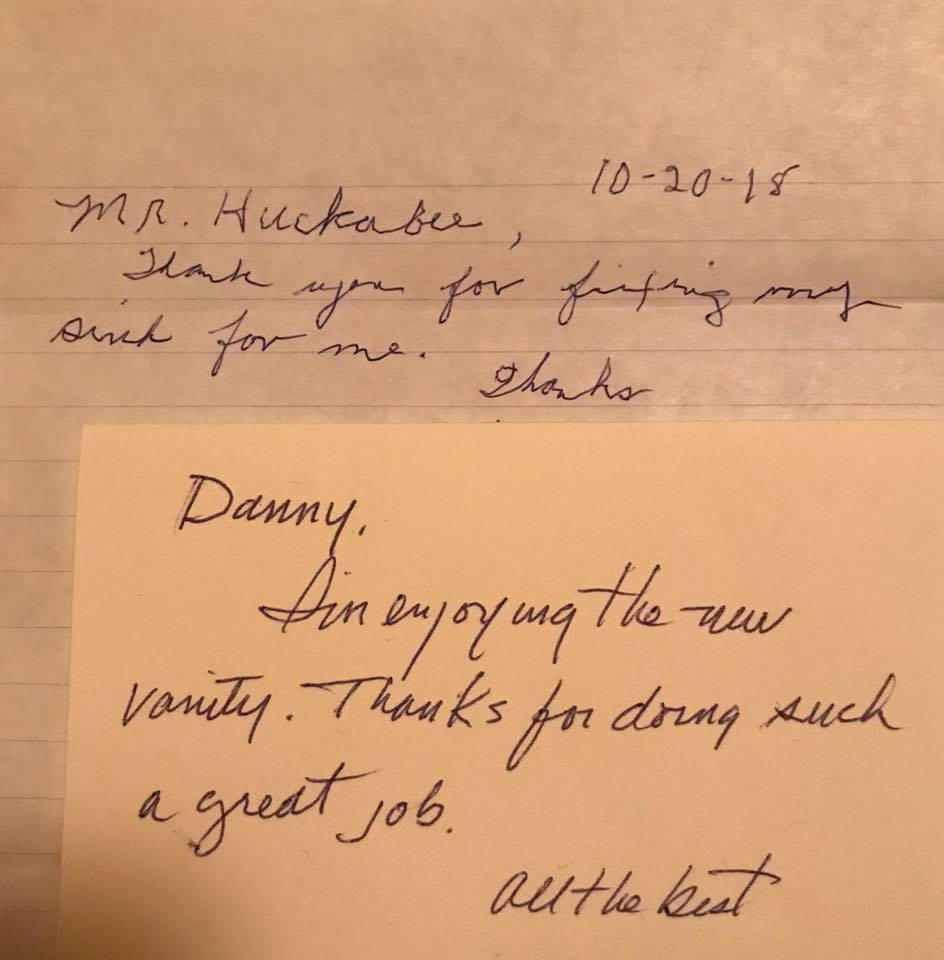 10-20-18
Mr. Huckabee,
Thank you for fixing my
sink for me.
Thanks
Danny,
I'm enjoying the new
vanity. Thanks for doing such
a great job.
All the best